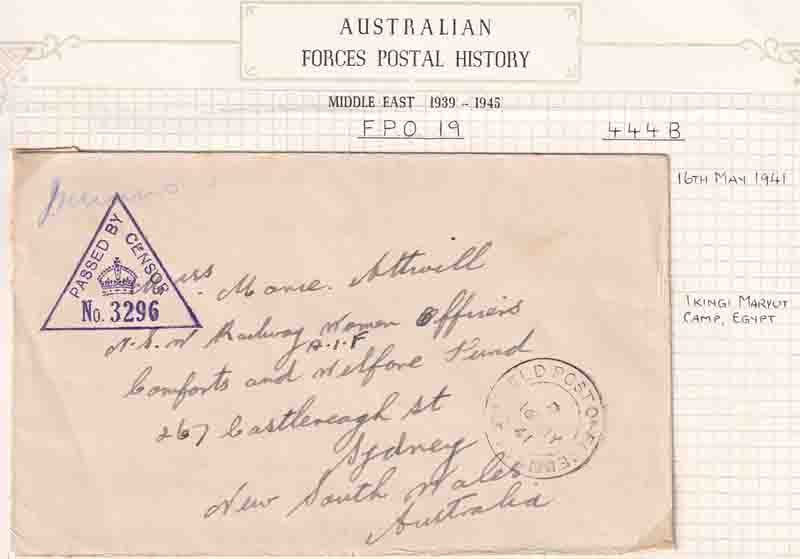 AUSTRALIAN
FORCES POSTAL HISTORY
MIDDLE EAST 1939 - 1945
F.P.O 19
444B
16TH MAY 1941
PASSED BY CENSOR
No. 3296
Miss. Marie. Attwill
N.S.W Railway Women Officers
A.I.F
Comforts and Welfare Fund
267 Castlereagh st
Sydney
New South Wales
Australia
FIELD POST OFFICE
16 MY
41
IKINGI MARYUT
CAMP, EGYPT